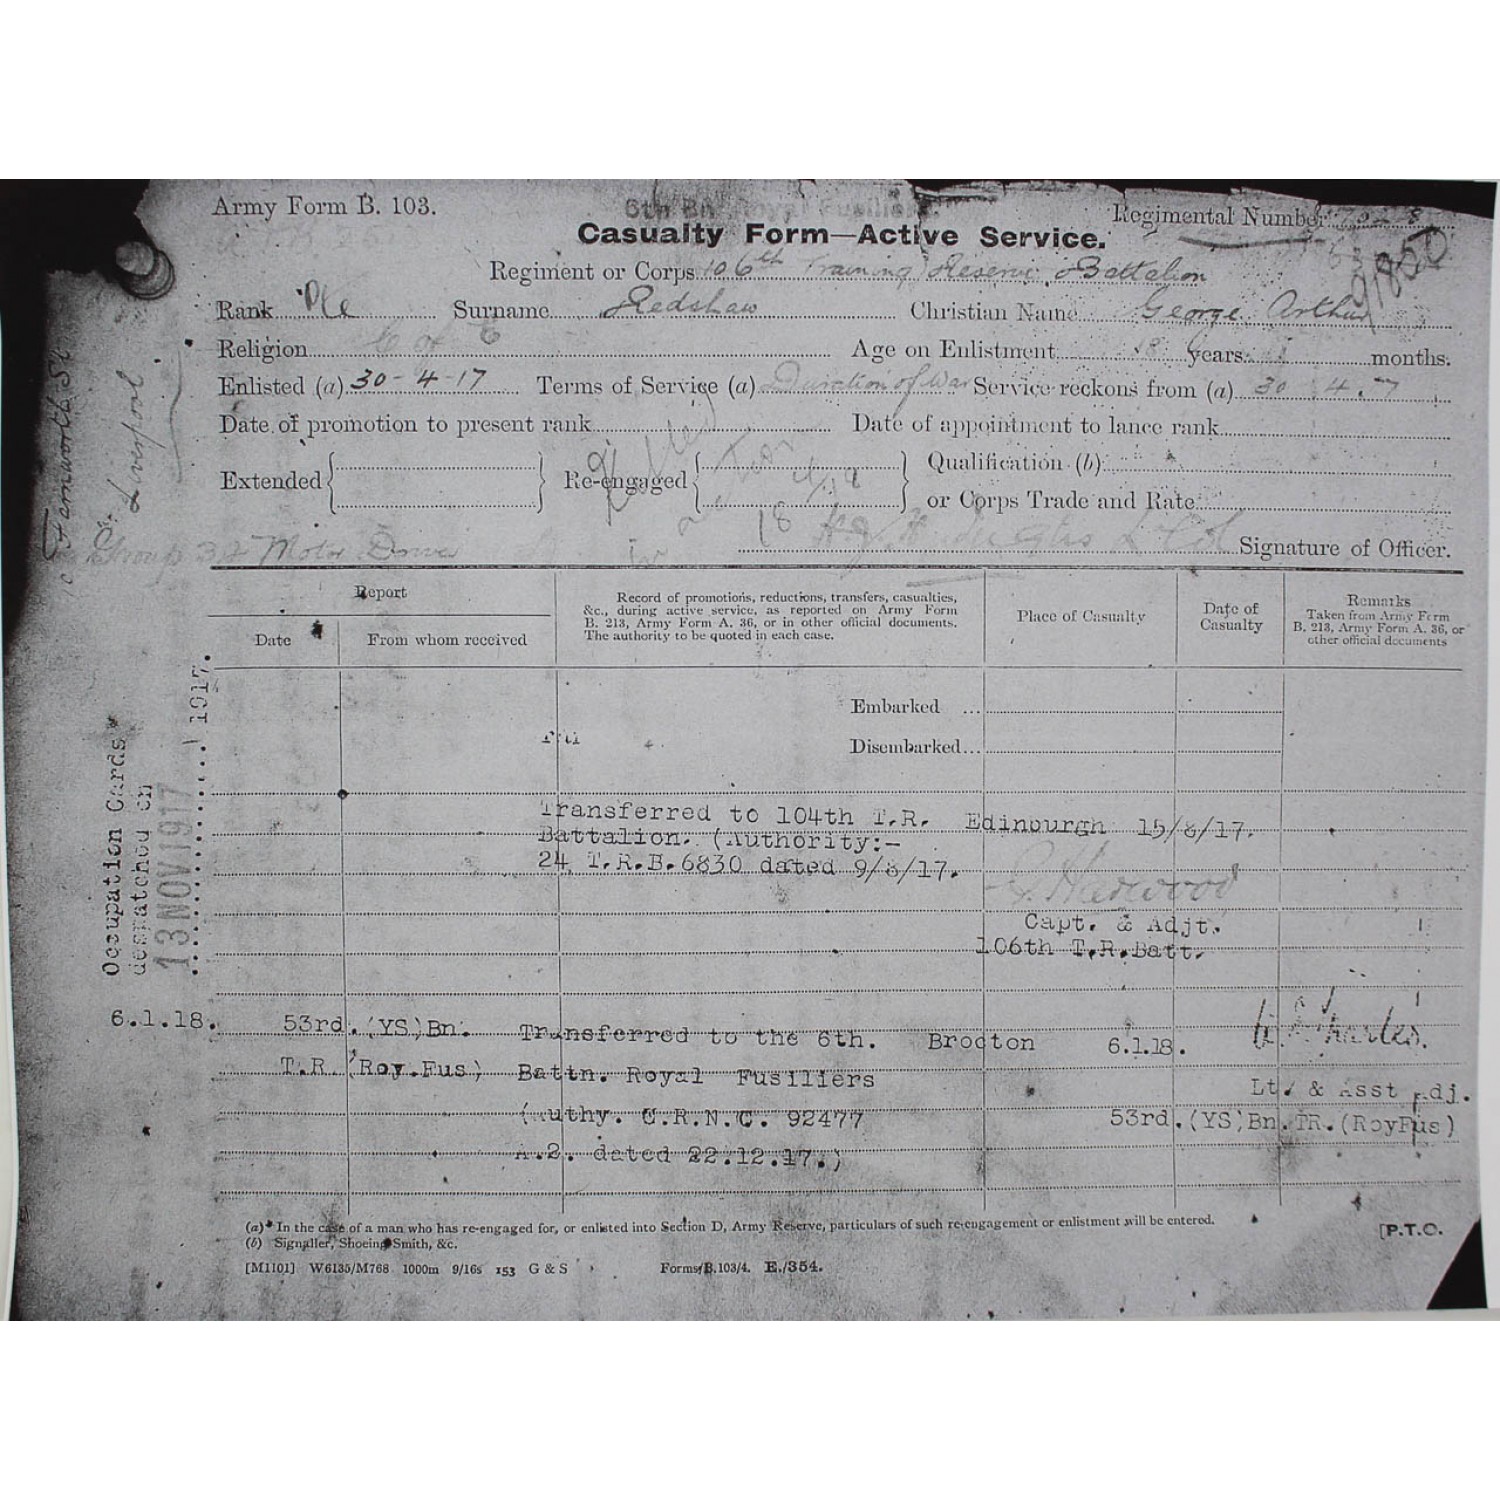 Army Form B. 103.
6th Bn Royal Fusiliers.
Regimental Number
Casualty Form—Active Service.
91850
Regiment or Corps 106th Training Reserve Battalion
Rank Pte Surname Redshaw Christian Name George Arthur
Religion C of E Age on Enlistment 18 years months.
Enlisted (a) 30-4-17 Terms of Service (a) Duration of War Service reckons from (a) 30 4.
Date of promotion to present rank Date of appointment to lance rank
Extended Re-engaged Qualification (b)
or Corps Trade and Rate
Farnworth St
Liverpool
Group 32 Motor Driver
Signature of Officer.
Report
Date
From whom received
Record of promotions, reductions, transfers, casualties,
&c., during active service, as reported on Army Form
B. 213, Army Form A. 36, or in other official documents.
The authority to be quoted in each case.
Place of Casualty
Date of
Casualty
Remarks
Taken from Army Form
B. 213, Army Form A. 36, or
other official documents
Embarked ...
Disembarked...
Occupation Cards
despatched on
13 NOV 1917
1917.
Transferred to 104th T.R. Edinburgh 15/8/17.
Battalion. (Authority:-
24 T.R.B.6830 dated 9/8/17.
Capt. & Adjt.
106th T.R.Batt.
6.1.18. 53rd.(YS)Bn. Transferred to the 6th. Brocton 6.1.18.
T.R.(Roy.Fus) Battn. Royal Fusiliers
Lt. & Asst Adj.
(Authy. C.R.N.C. 92477 53rd.(YS)Bn.TR.(RoyFus)
A.2. dated 22.12.17.)
(a) In the case of a man who has re-engaged for, or enlisted into Section D, Army Reserve, particulars of such re-engagement or enlistment will be entered.
(b) Signaller, Shoeing Smith, &c.
[P.T.O.
[M1101] W6135/M768 1000m 9/16s 153 G & S Forms/B.103/4. E./354.